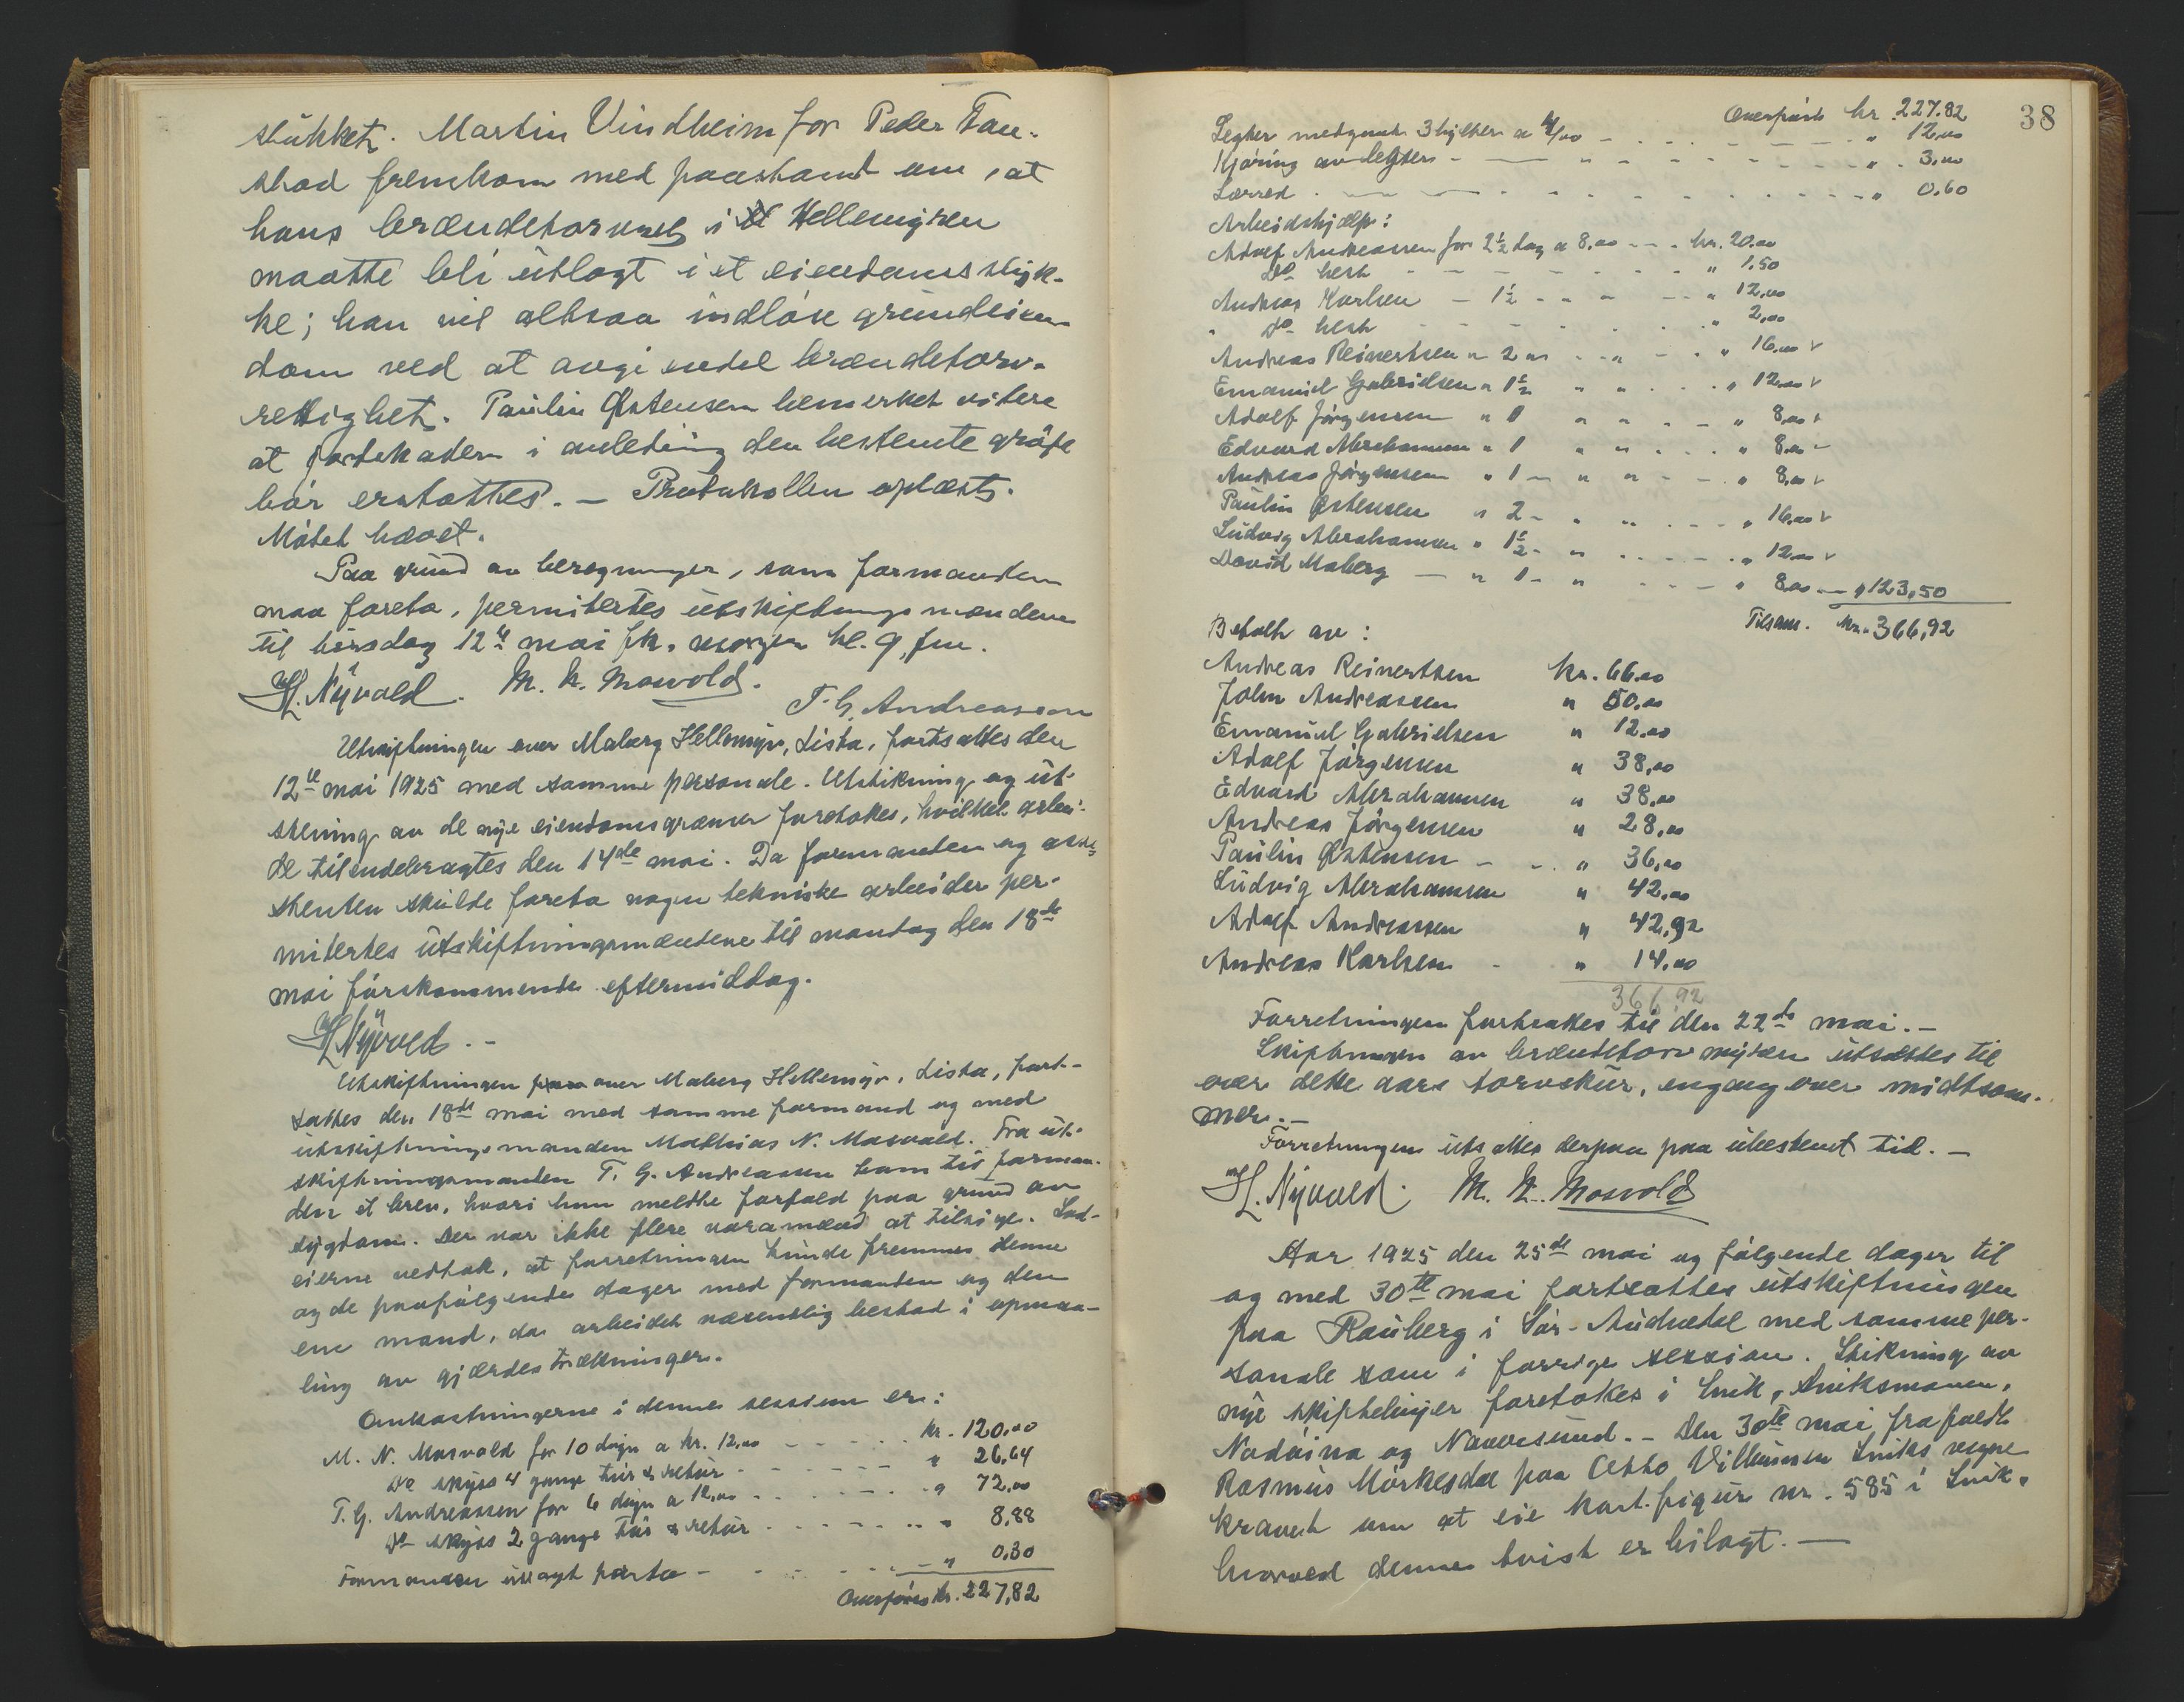 stükket. Martin Vindheim for Peder Tau-
skad fremkom med paastand om, at
hans brændetorvret i Hellemyren
maatte bli utlagt i et eiendomsstyk-
ke; han vil altsaa indløse grundeien-
dom ved at avgi endel brændetorv-
rettighet. Paulin Østensen bemerket videre
at jordskaden i anledning den bestemte grøft
bør erstattes. – Protokollen oplæst.
Møtet hævet.
Paa grund av beregninger, som formanden
maa foreta, permitertes utskiftningsmændene
til tirsdag 12te mai fk. morgen kl. 9 fm.
H. Nyvold. M. N. Mosvold.
T. G. Andreassen
Utskiftningen over Maberg Hellemyr, Lista, fortsattes den
12te mai 1925 med samme personale. Utstikning og ut-
stening av de nye eiendomsgrænser foretokes, hvilket arbei-
de tilendebragtes den 14de mai. Da formanden og assi-
stenten skulde foreta nogen tekniske arbeider per-
mitertes utskiftningsmændene til mandag den 18de
mai førstkommende eftermiddag.
H. Nyvold. –
Utskiftningen over Maberg Hellemyr, Lista, fort-
sattes den 18de mai med samme formand og med
utskiftningsmanden Mathias N. Mosvold. Fra ut-
skiftningsmanden T. G. Andreassen kom til forman-
den et brev, hvori han meldte forfald paa grund av
sygdom. Der var ikke flere varamænd at tilsige. Lod-
eierne vedtok, at forretningen kunde fremmes denne
og de paafølgende dager med formanden og den
ene mand, da arbeidet væsentlig bestod i opmaa-
ling av gjærdestrækninger.
Omkostningerne i denne session er:
M. N. Mosvold for 10 døgn a kr. 12,00 kr. 120,00
Do skyss 4 gange tur & retur " 26,64
T. G. Andreassen for 6 døgn a 12,00 " 72,00
Do skyss 2 gange tur & retur " 8,88
Formanden utlagt porto " 0,30
Overføres kr. 227,82
38
Overført kr. 227.82
Legter medgaat 3 hylter a 4/00 " 12,00
Kjøring av legter " 3,00
Lerred " 0,60
Arbeidshjælp:
Adolf Andreassen for 2 1/2 dag a 8,00 kr. 20,00
Do hest " 1,50
Andreas Karlsen – 1 1/2 " 12,00
" Do hest " 2,00
Andreas Reinertsen " 2 " 16,00 v
Emanuel Gabrielsen " 1 1/2 " 12,00 v
Adolf Jørgensen " 1 " 8,00 v
Edvard Abrahamsen " 1 " 8,00 –
Andreas Jørgensen " 1 " 8,00 v
Paulin Østensen " 2 " 16,00 v
Ludvig Abrahamsen " 1 1/2 " 12,00 v
David Maberg " 1 " 8,00 – " 123,50
Tilsam. kr. 366,92
Betalt av:
Andreas Reinertsen kr. 66,00
John Andreassen " 50,00
Emanuel Gabrielsen " 12,00
Adolf Jørgensen " 38,00
Edvard Abrahamsen " 38,00
Andreas Jørgensen " 28,00
Paulin Østensen " 36,00
Ludvig Abrahamsen " 42,00
Adolf Andreassen " 42,92
Andreas Karlsen " 14,00
366,92
Forretningen fortsattes til den 22de mai. –
Skiftningen av brændetorvmyren utsættes til
over dette aars torvskur, engang over midtsom-
mer. –
Forretningen utsattes derpaa paa ubestemt tid. –
H. Nyvold. M. N. Mosvold
Aar 1925 den 25de mai og følgende dager til
og med 30te mai fortsattes utskiftningen
paa Rauberg i Sør-Audnedal med samme per-
sonale som i forrige session. Stikning av
nye skiftelinjer foretokes i Snik, Sniksmonen,
Nodøina og Navesund. – Den 30te mai frafaldt
Rasmus Mørkesdal paa Otto Villumsen Sniks vegne
kravet om at eie kart.figur nr. 585 i Snik,
hvorved denne tvist er bilagt. –